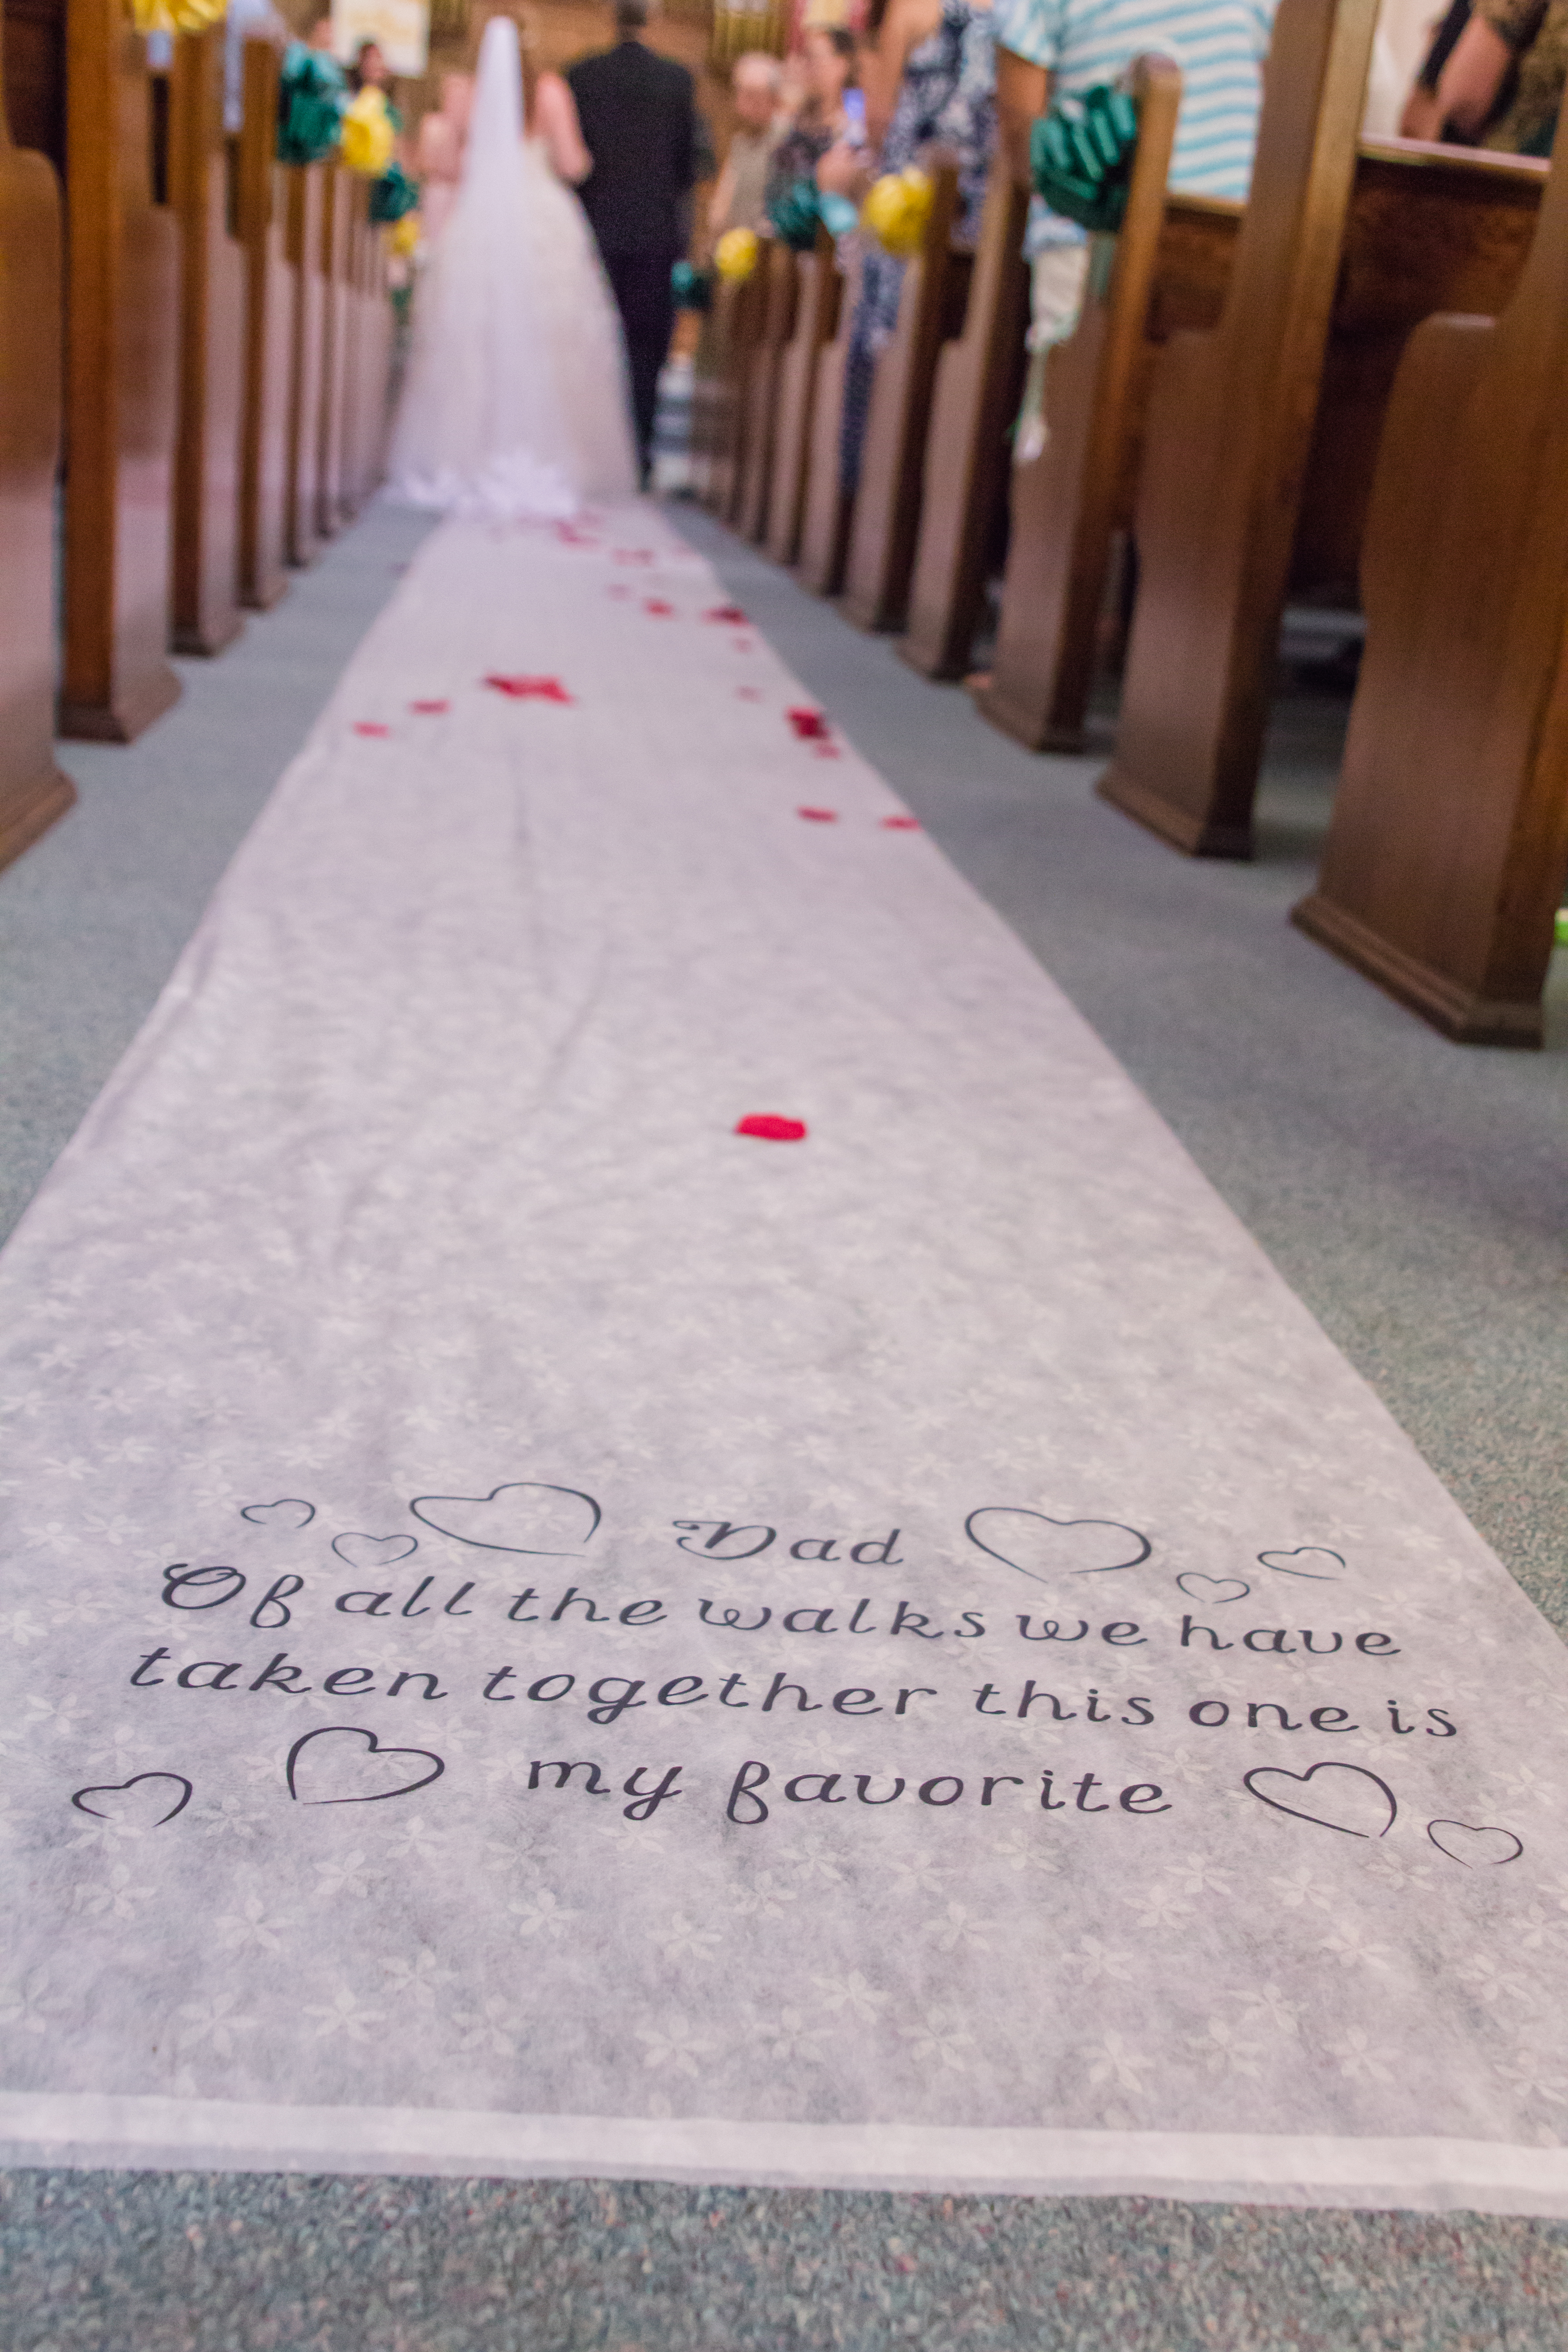 Dad
Of all the walks we have
taken together this one is
my favorite